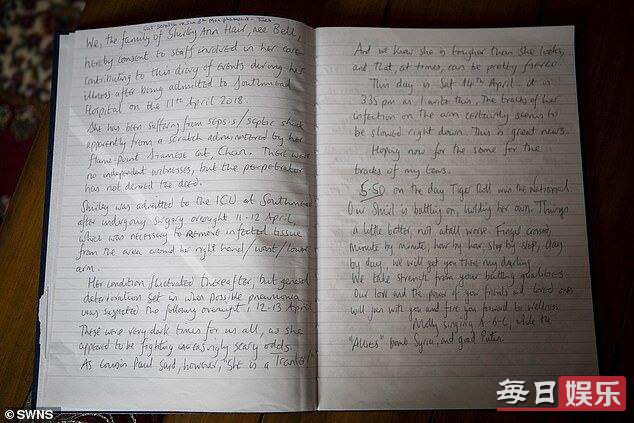 We, the family of Shirley Ann Hair, nee Bell,
hereby consent to staff involved in her care
contributing to this diary of events during her
illness after being admitted to Southmead
Hospital on the 11th April 2018
She has been suffering from sepsis/septic shock
apparently from a scratch administered by her
flame-point Siamese cat, Chan. There were
no independent witnesses, but the perpetrator
has not denied the deed.
Shirley was admitted to the ICU at Southmead
after undergoing surgery overnight 11-12 April,
which was necessary to remove infected tissue
from the area around her right hand/wrist/lower
arm.
Her condition fluctuated thereafter, but general
deterioration set in when possible pneumonia
was suspected the following overnight, 12-13 April
These were very dark times for us all, as she
appeared to be fighting increasingly scary odds.
As cousin Paul said, however, "She is a Tranter!"
And we know she is tougher than she looks,
and that, at times, can be pretty fierce.
This day is Sat 14th April. It is
3.35 pm as I write this. The tracks of her
infection on the arm certainly seeming to
be slowed right down. This is great news.
Hoping now for the same for the
tracks of my tears.
5.50 on the day Tiger Roll won the National.
Our Shirl is battling on, holding her own. Things
a little better, not at all worse. Fingers crossed,
Minute by minute, hour by hour, step by step, day
by day, we will get you there my darling.
We take strength from your battling qualities.
Our love and the power of your friends and loved ones
will join with you and fire you forward to wellness
Molly singing A-O-C, while the
"Allies" bomb Syria, and goad Putin.
© SWNS
每日娱乐